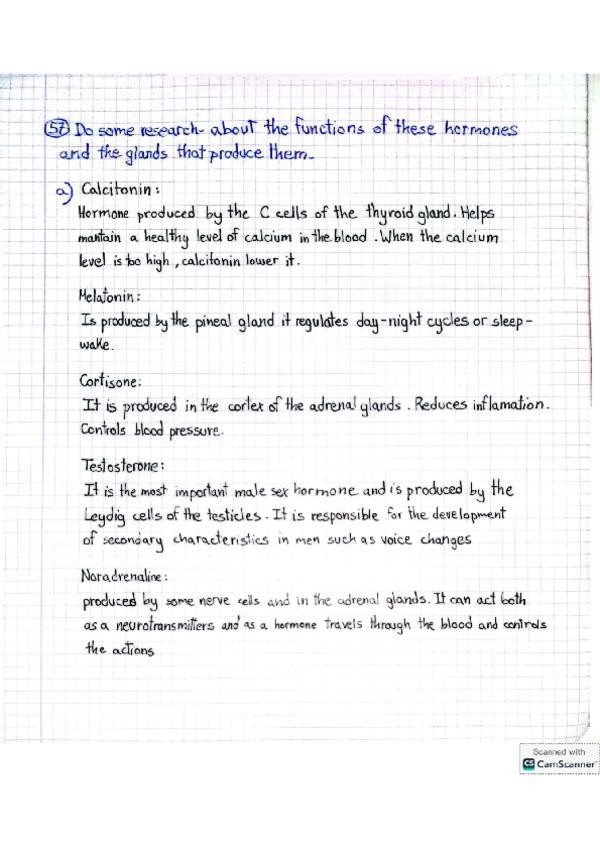 57 Do some research about the functions of these hormones
and the glands that produce them.
a) Calcitonin:
Hormone produced by the C cells of the thyroid gland. Helps
mantain a healthy level of calcium in the blood. When the calcium
level is too high, calcitonin lower it.
Melatonin:
Is produced by the pineal gland it regulates day-night cycles or sleep-
wake.
Cortisone:
It is produced in the cortex of the adrenal glands. Reduces inflamation.
Controls blood pressure.
Testosterone:
It is the most important male sex hormone and is produced by the
Leydig cells of the testicles. It is responsible for the development
of secondary characteristics in men such as voice changes
Noradrenaline:
produced by some nerve cells and in the adrenal glands. It can act both
as a neurotransmitters and as a hormone travels through the blood and controls
the actions
Scanned with
CS CamScanner